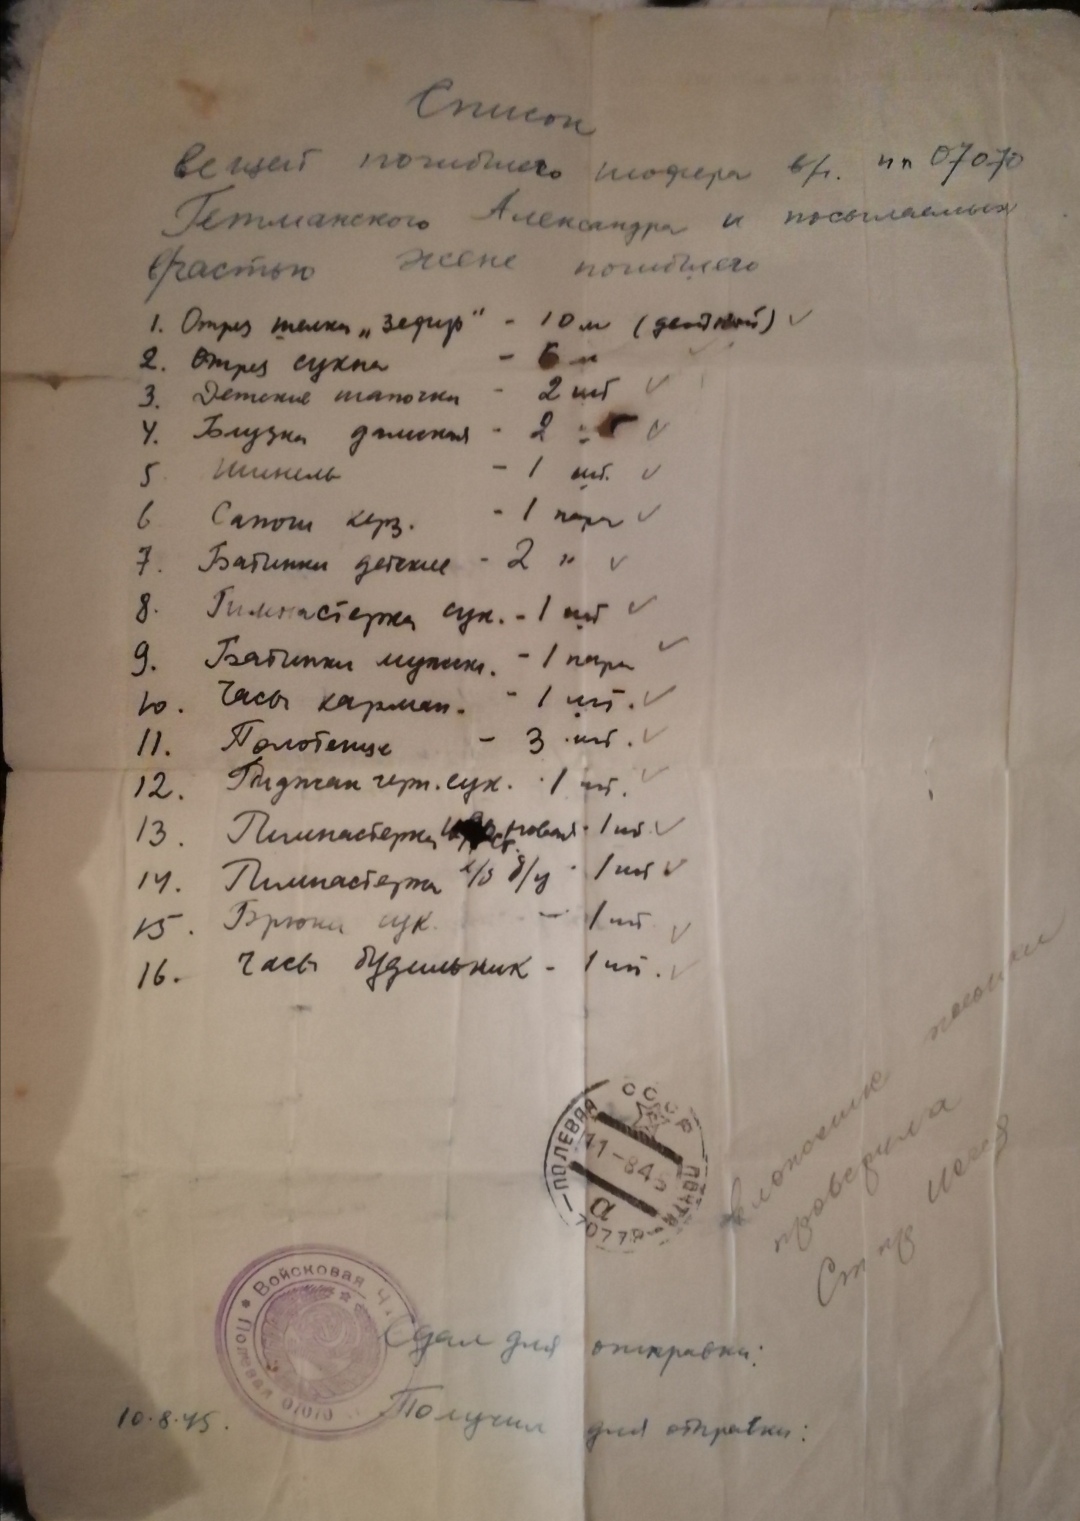 Список
вещей погибшего шофера в/ч. пп 07070
Гетманского Александра и посылаемых
в/частью жене погибшего
1. Отрез шелка „Зефир“ - 10 м
2. Отрез сукна - 6 м
3. Детские тапочки - 2 шт
4. Блузка дамская - 2
5 Шинель - 1 шт.
6 Сапоги керз. - 1 пара
7. Батинки детские - 2 "
8. Гимнастерка сук. - 1 шт
9. Батинки мужск. - 1 пара
10. Часы карман. - 1 шт.
11. Полотенце - 3 шт.
12. Пиджак черн. сук. - 1 шт.
13. Гимнастерка новая - 1 шт.
14. Гимнастерка х/б б/у - 1 шт
15. Брюки сук. - 1 шт
16. Часы будильник - 1 шт.
СССР
ПОЛЕВАЯ ПОЧТА
11-845
а
70778
проверила
Войсковая Ч.
Полевая 07070
Сдал для отправки:
10.8.45. Получил для отправки: